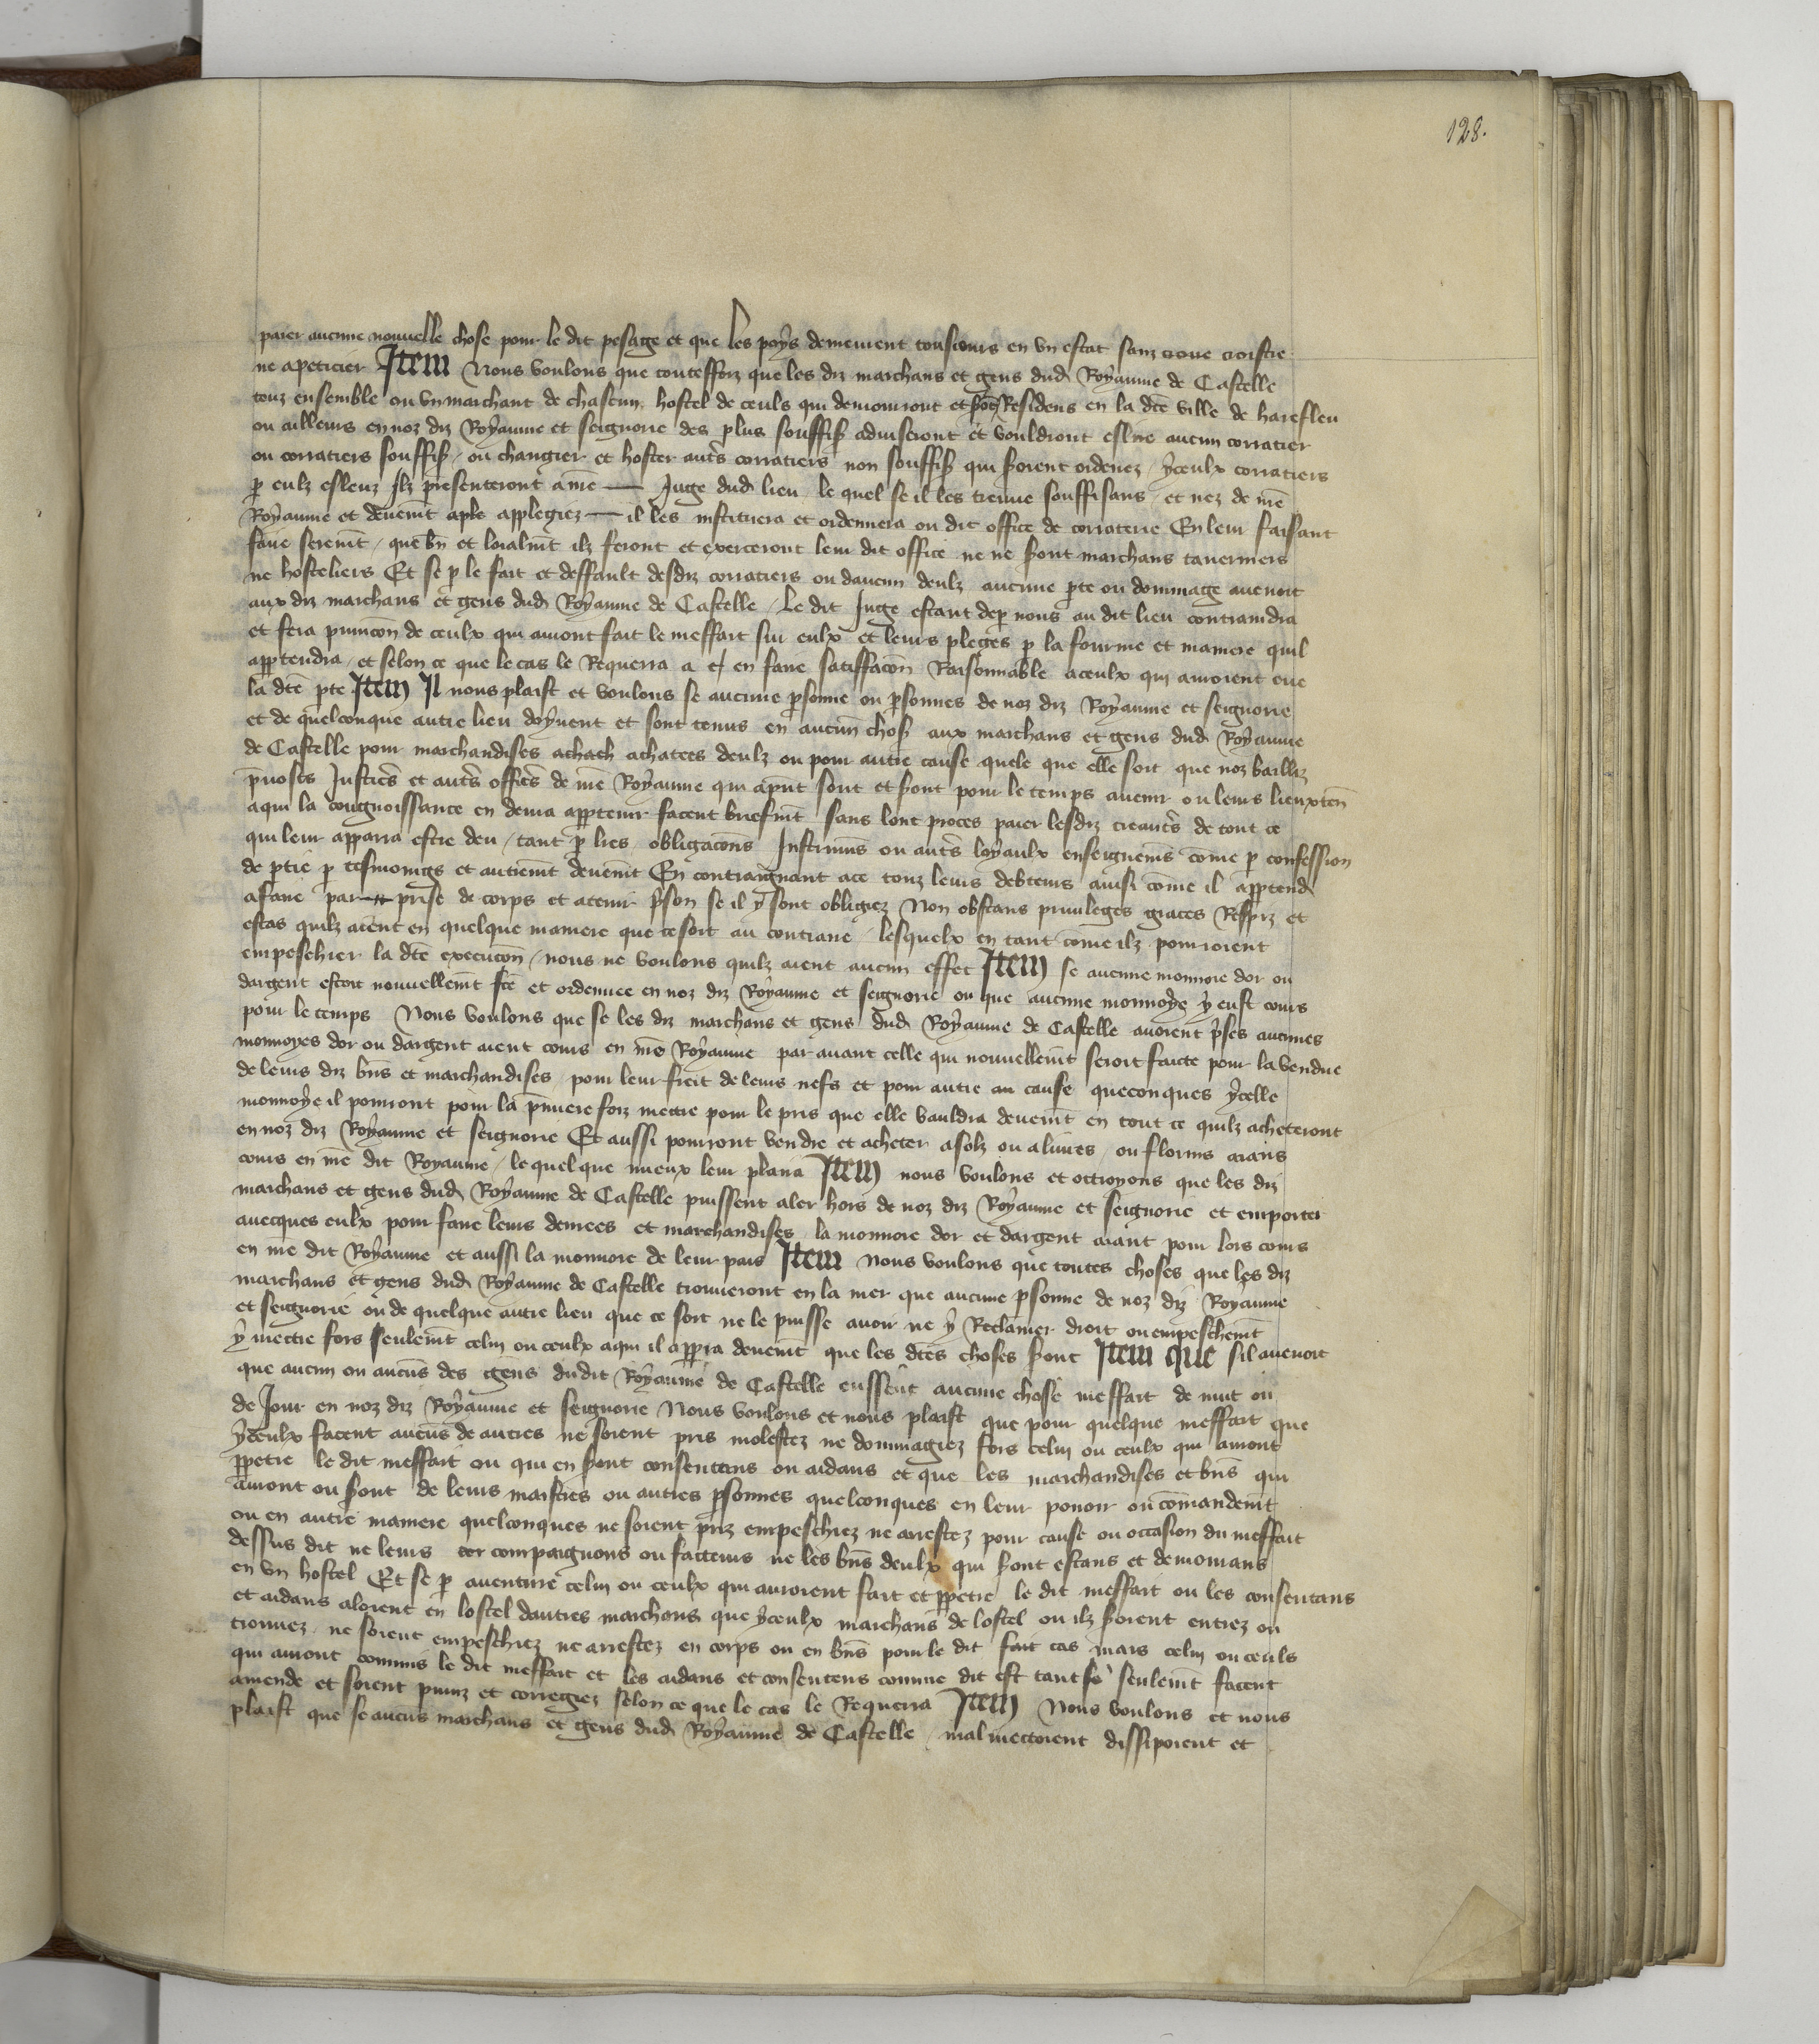 128.
paier aucune nouvelle chose pour le dit pesage et que les poys demeurent tousiours en vn estat sanz croistre
ne apeticier Item Nous voulons que toutesfoiz que les diz marchans et gens dud Royaume de Castelle
touz ensemble ou vn marchant de chascun hostel de ceuls qui demourront et Residens en la dce ville de harefleu
ou ailleurs en noz diz Royaume et seignorie des plus souffis aduiseront et vouldront eslire aucun corratier
ou corratiers souffis / ou changier et hoster autres corratiers non souffis qui soient ordenez / yceulx corratiers
p eulz esleuz Ilz presenteront a nre Juge dud lieu le quel se il les treuue souffisans et nez de nre
Royaume et deuemt applegiez il les instituera et ordennera ou dit office de corraterie En leur faisant
faire seremt / que bn et loialmt ilz feront et exerceront leur dit office ne ne sont marchans tauerniers
ne hosteliers Et se p le fait et deffault desdiz corratiers ou daucun deulz aucune pte ou dommage auenoit
aux diz marchans et gens dud Royaume de Castelle / Le dit Juge estant dep nous au dit lieu contraindra
et fera punicon de ceulx qui auront fait le meffait sur eulx et leurs pleges p la fourme et maniere quil
apptendra / et selon ce que le cas le Requerra a en faire satiffacon Raisonnable a ceulx qui auroient eue
la dce pte Item Il nous plaist et voulons se aucune psonne ou psonnes de noz diz Royaume et seignorie
et de quelconque autre lieu doyuent et sont tenus en aucun chos aux marchans et gens dud Royaume
de Castelle pour marchandises achatees deulz ou pour autre cause quele que elle soit que noz bailliz
preuosts Justices et autres offices de nre Royaume qui apnt sont et sont pour le temps auenir ou leurs lieuxten
a qui la congnoissance en deura apptenir facent briefmt sans lont proces paier lesdiz creancs de tout ce
qui leur apparra estre deu / tant p lres obligacons Instrumts ou autrs loyaulx enseignemts come p confession
de ptie p tesmoings et autremt deuemt En contraignant a ce touz leurs debteurs ainsi come il apptend
a faire par prise de corps et a tenir prison se il y sont obligez Non obstans priuileges graces Respiz et
estas quilz aient en quelque maniere que ce soit au contraire / lesquelx en tant come ilz pourroient
empeschier la dce execucon / nous ne voulons quilz aient aucun effet Item se aucune monnoie dor ou
dargent estoit nouuellemt fce et ordennee en noz diz Royaume et seignorie ou que aucune monnoye y eust cours
pour le temps Nous voulons que se les diz marchans et gens dud Royaume de Castelle auoient prses aucunes
monnoyes dor ou dargent aient cours en nre Royaume par auant celle qui nouuellemt seroit faicte pour la vendue
de leurs diz bns et marchandises / pour leur freit de leurs nefs et pour autre cause queconques ycelle
monnoye il pourront pour la pmiere foiz mettre pour le pris que elle vauldra deuemt en tout ce quilz acheteront
en noz diz Royaume et seignorie Et aussi pourront vendre et acheter a solz ou a liures / ou florins aians
cours en nre dit Royaume / le quel que mieux leur plaira Item nous voulons et octroyons que les diz
marchans et gens dud Royaume de Castelle puissent aler hors de noz diz Royaume et seignorie et emporter
auecques eulx pour faire leurs denrees et marchandises la monnoie dor et dargent aiant pour lors cours
en nre dit Royaume et aussi la monnoie de leur pais Item Nous voulons que toutes choses que les diz
marchans et gens dud Royaume de Castelle trouueront en la mer que aucune psonne de noz diz Royaume
et seignorie ou de quelque autre lieu que ce soit ne le puisse auoir ne y Reclamer droit ou empeschemt
y mettre fors seulemt celui ou ceulx a qui il apprra deuemt que les dces choses sont Item que sil auenoit
que aucun ou aucuns des gens du dit Royaume de Castelle eussent aucune chose meffait de nuit ou
de Jour en noz diz Royaume et seignorie Nous voulons et nous plaist que pour quelque meffait que
yceulx facent aucuns de autres ne soient pris molestez ne dommagiez fors celui ou ceulx qui auront
ppetre le dit meffait ou qui en sont consentens ou aidans et que les marchandises et bns qui
auront ou sont de leurs maistres ou autres psonnes quelconques en leur pouoir ou comandemt
ou en autre maniere quelconques ne soient priz empeschiez ne arrestez pour cause ou occasion du meffait
dessus dit ne leurs compaignons ou facteurs ne les bns deulx qui sont estans et demourans
en vn hostel Et se p auenture celui ou ceulx qui auroient fait et ppetre le dit meffait ou les consentans
et aidans aloient en lostel dautres marchans que yceulx marchans de lostel ou ilz soient entrez ou
trouuez / ne soient empeschiez ne arrestez en corps ou en bns pour le dit fait cas mais celui ou ceuls
qui auront commis le dit meffait et les aidans et consentens comme dit est tant se seulemt facent
amende et soient puniz et corregiez selon ce que le cas le Requerra Item Nous voulons et nous
plaist que se aucus marchans et gens dud Royaume de Castelle / mal mettoient dissipoient et